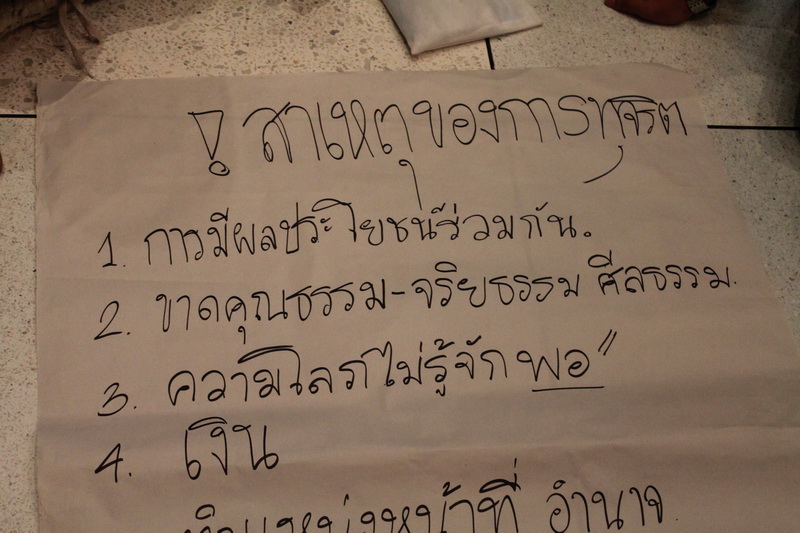 ! สาเหตุของการทุจริต
1. การมีผลประโยชน์ร่วมกัน.
2. ขาดคุณธรรม-จริยธรรม ศีลธรรม.
3. ความโลภ ไม่รู้จัก พอ"
4. เงิน
ตำแหน่งหน้าที่ อำนาจ